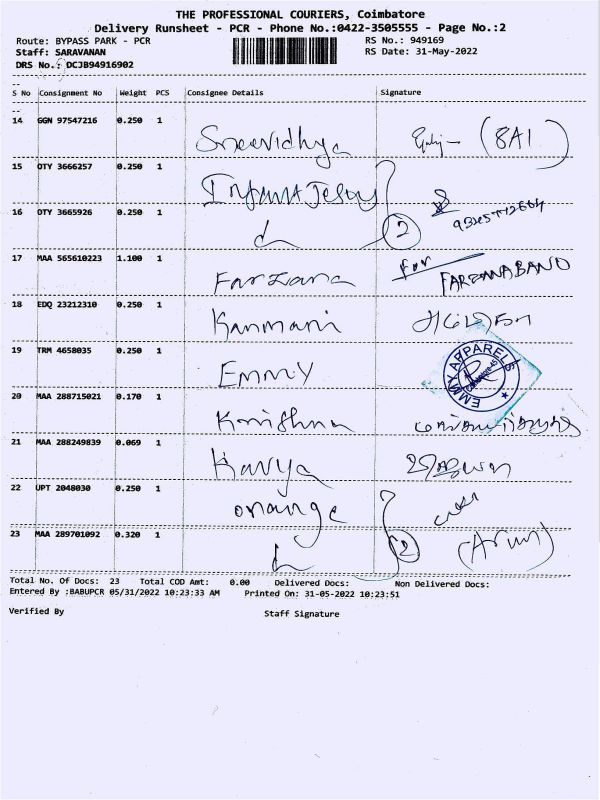 THE PROFESSIONAL COURIERS, Coimbatore
Delivery Runsheet - PCR - Phone No.:0422-3505555 - Page No.:2
Route: BYPASS PARK - PCR RS No.: 949169
Staff: SARAVANAN RS Date: 31-May-2022
DRS No.: DCJB94916902
S No Consignment No Weight PCS Consignee Details Signature
14 GGN 97547216 0.250 1 Sreevidhya
15 OTY 3666257 0.250 1 Infant Jesus
16 OTY 3665926 0.250 1 2
17 MAA 565610223 1.100 1 Farzana For FARZANABANO
18 EDQ 23212310 0.250 1 Kanmani
19 TRM 4658035 0.250 1 EMMY EMMY APPARELS
20 MAA 288715021 0.170 1 Krishna
21 MAA 288249839 0.069 1 Kavya
22 UPT 2048030 0.250 1 orange
23 MAA 289701092 0.320 1 2 (Arun)
Total No. Of Docs: 23 Total COD Amt: 0.00 Delivered Docs: Non Delivered Docs:
Entered By :BABUPCR 05/31/2022 10:23:33 AM Printed On: 31-05-2022 10:23:51
Verified By Staff Signature